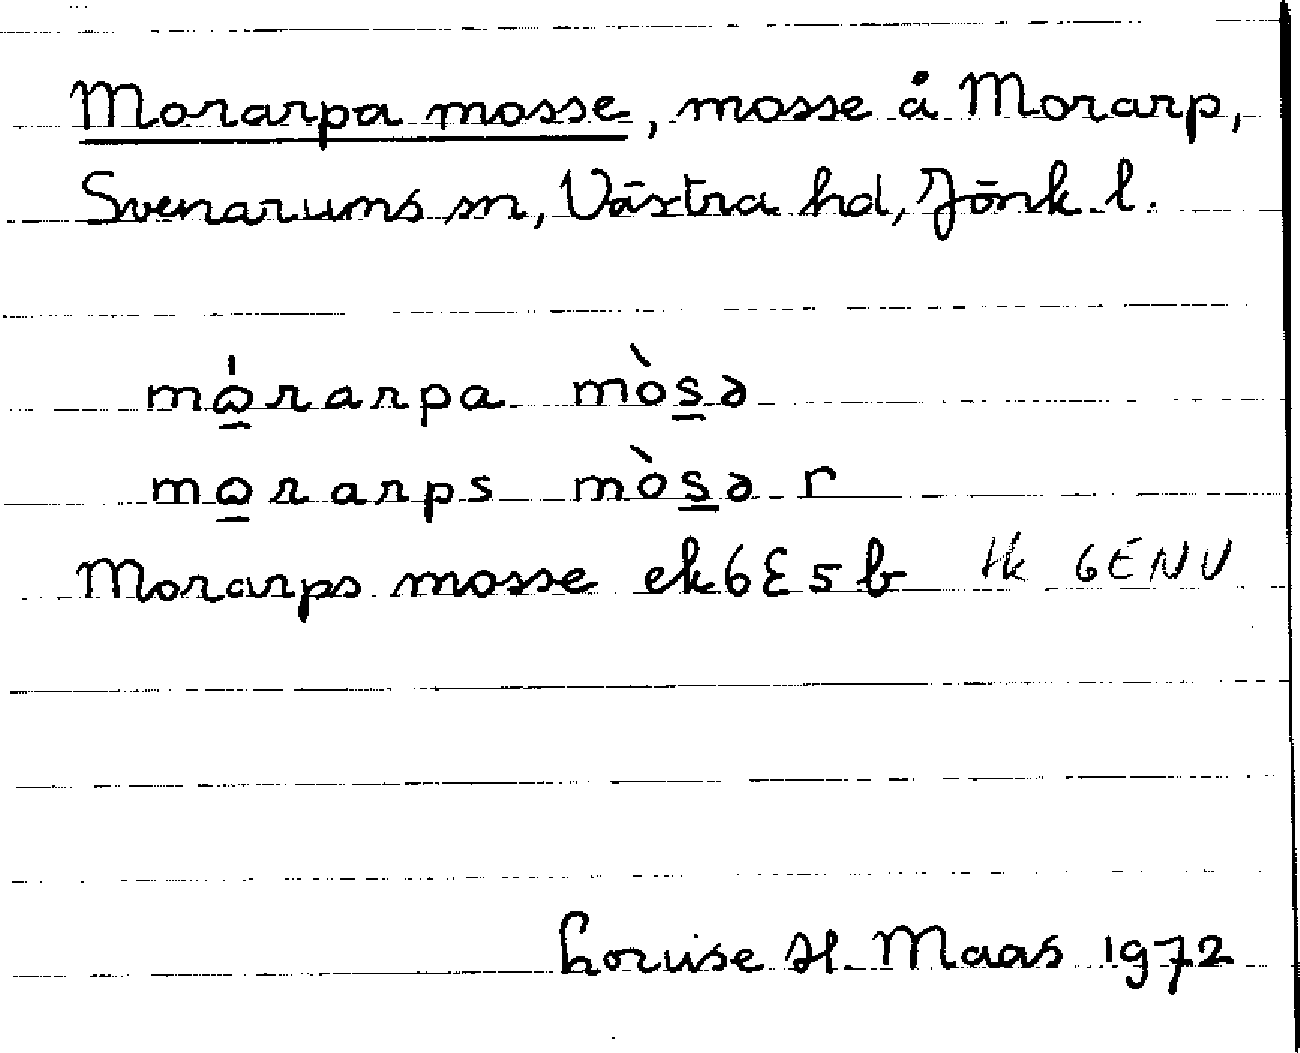 Morarpa mosse, mosse å Morarp,
Svenarums sn, Västra hd, Jönk. l.
mo̲̍rarpa mòs̲ə
mo̲rarps mòs̲ə r
Morarps mosse ek 6E5b Hk 6ENV
Louise H. Maas 1972